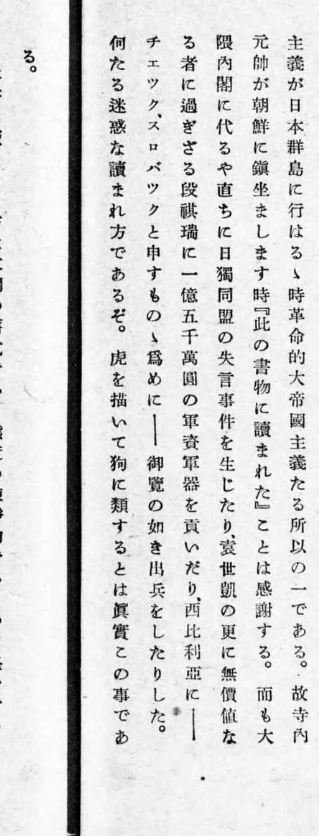 主義が日本群島に行はるゝ時革命的大帝國主義たる所以の一である。故寺內
元帥が朝鮮に鎭坐まします時『此の書物に讀まれた』ことは感謝する。而も大
隈內閣に代るや直ちに日獨同盟の失言事件を生じたり、袁世凱の更に無價値な
る者に過ぎざる段祺瑞に一億五千萬圓の軍資軍器を貢いだり、西比利亞に――
チエツク、スロバツクと申すものゝ爲めに――御覽の如き出兵をしたりした。
何たる迷惑な讀まれ方であるぞ。虎を描いて狗に類するとは眞實この事であ
る。